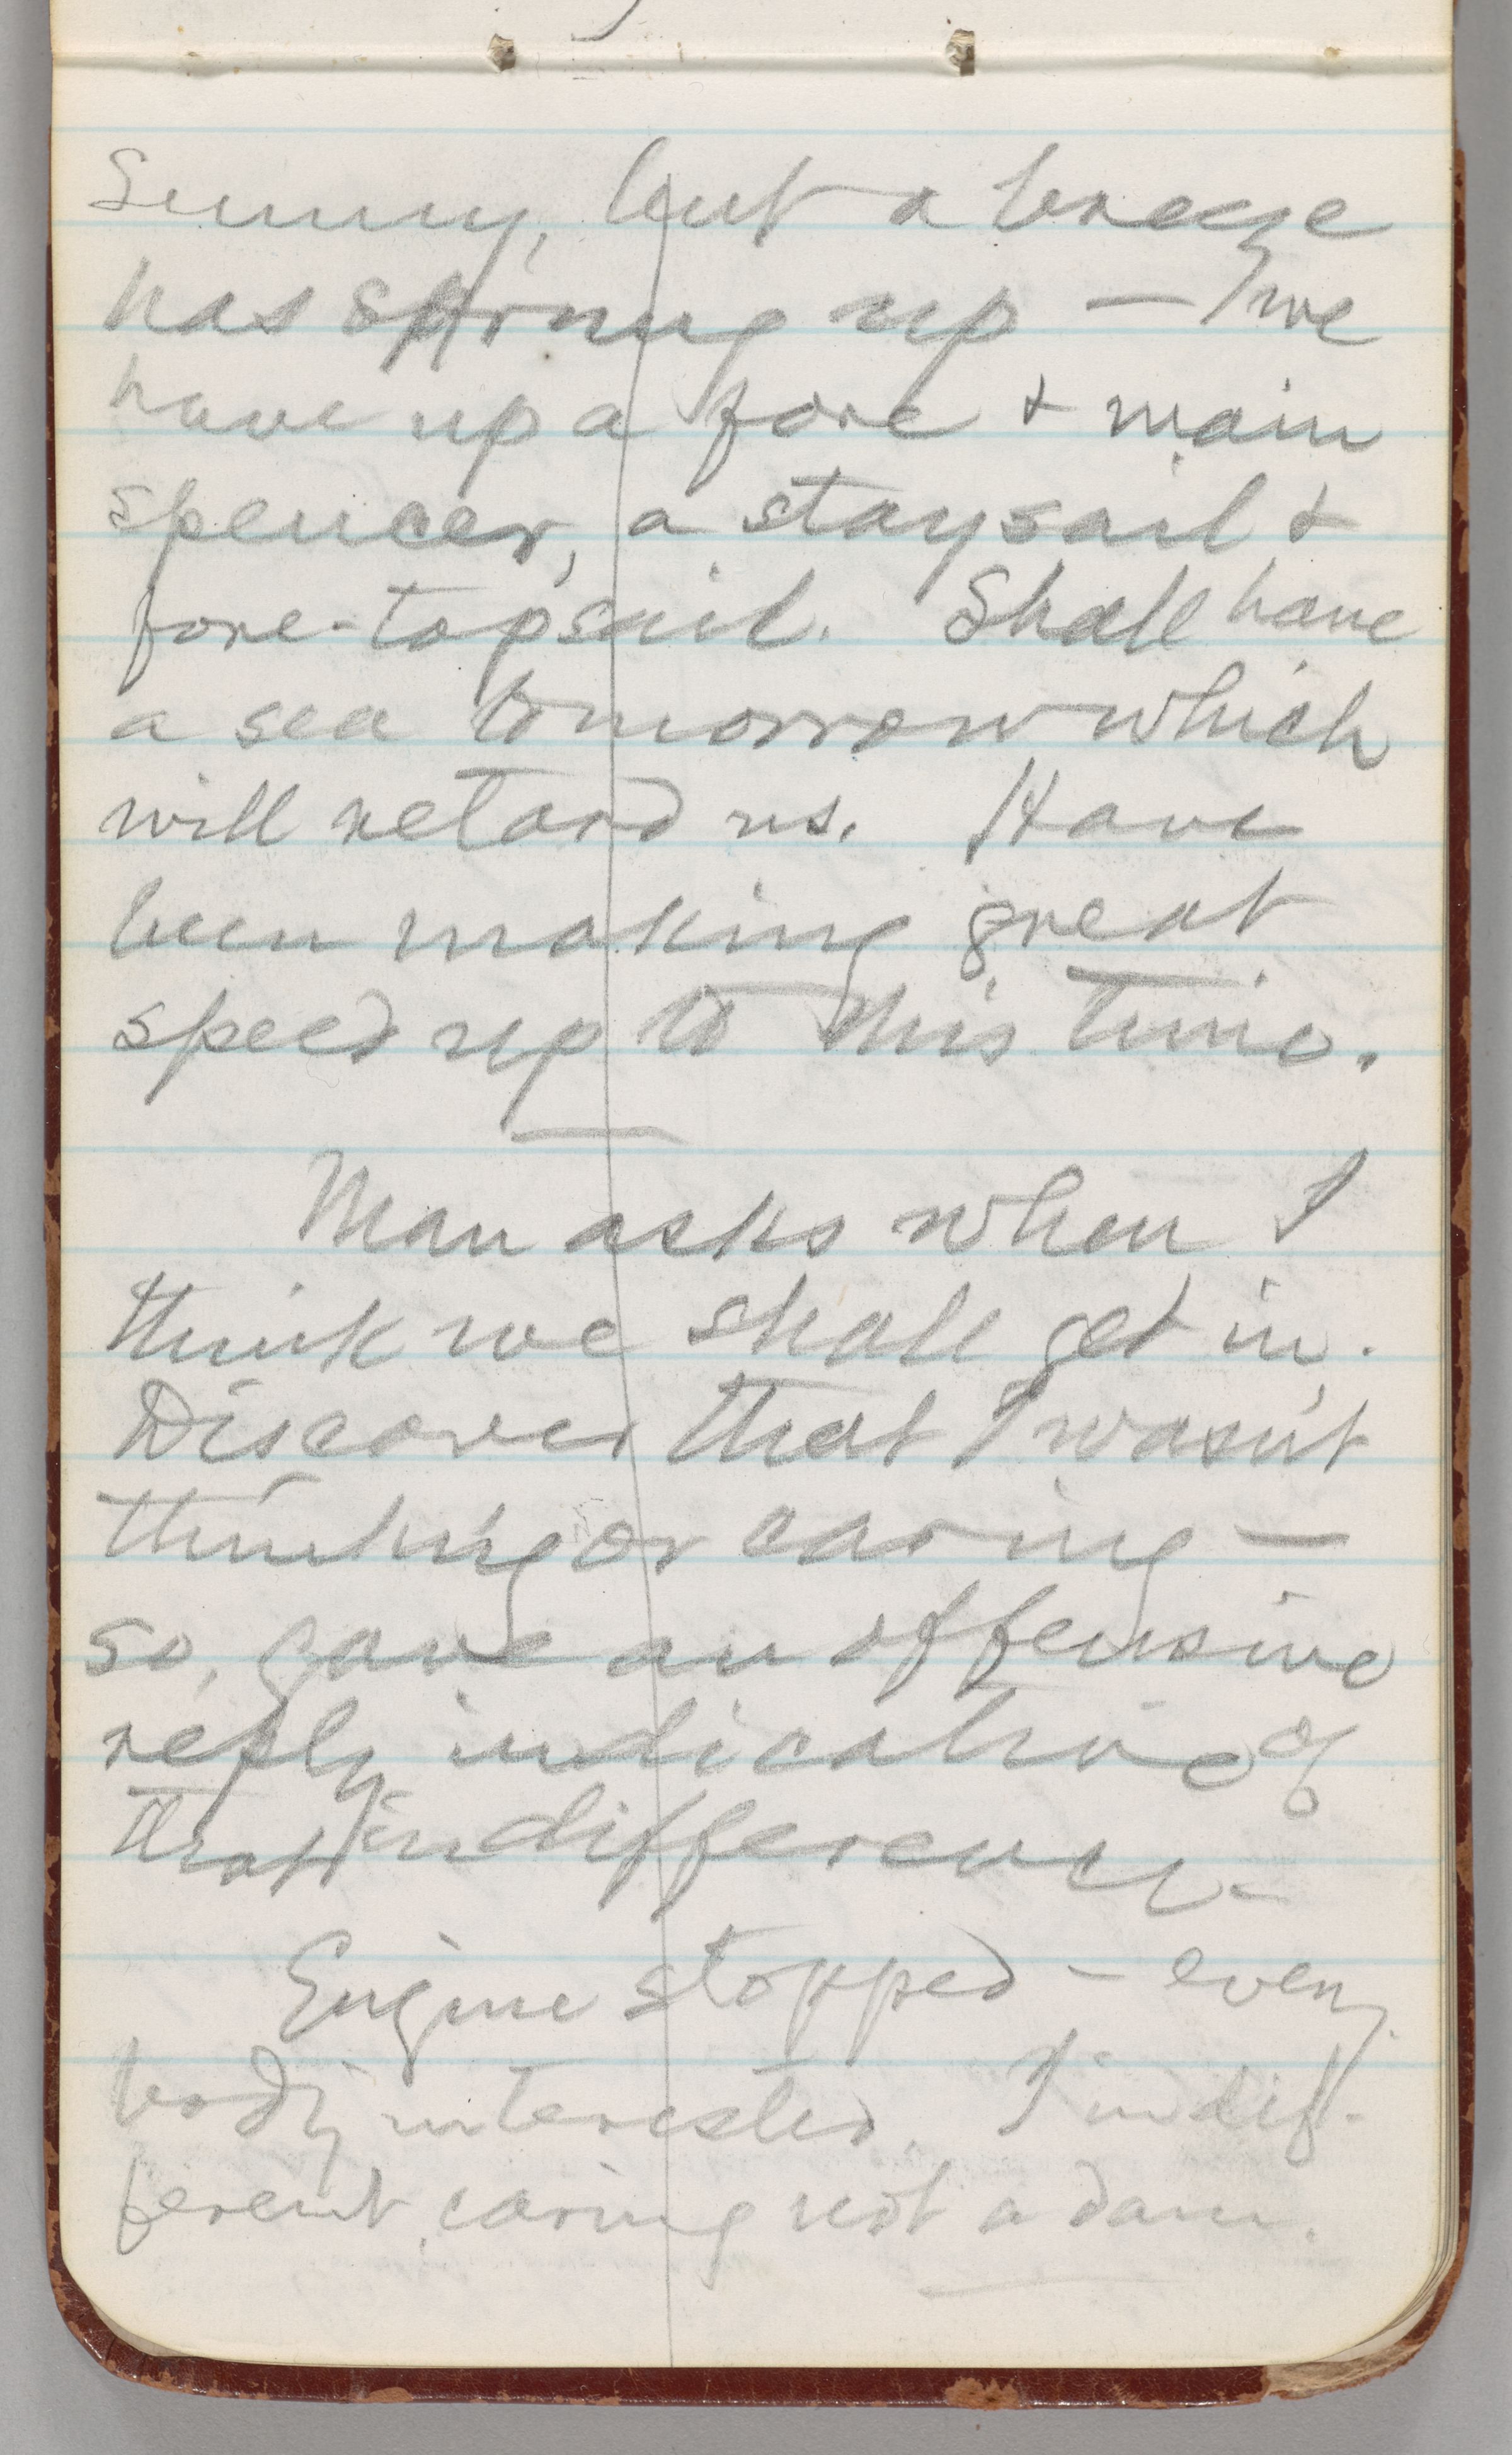 Sunny, but a breeze
has sprung up — we
have up a fore & main
spencer, a staysail &
fore-topsail. Shall have
a sea tomorrow which
will retard us. Have
been making great
speed up to this time.
Man asks when I
think we shall get in.
Discover that I wasn't
thinking or caring —
so, gave an offensive
reply indicative of
that indifference.
Engine stopped — every
body interested. I indif-
ferent, caring not a damn.